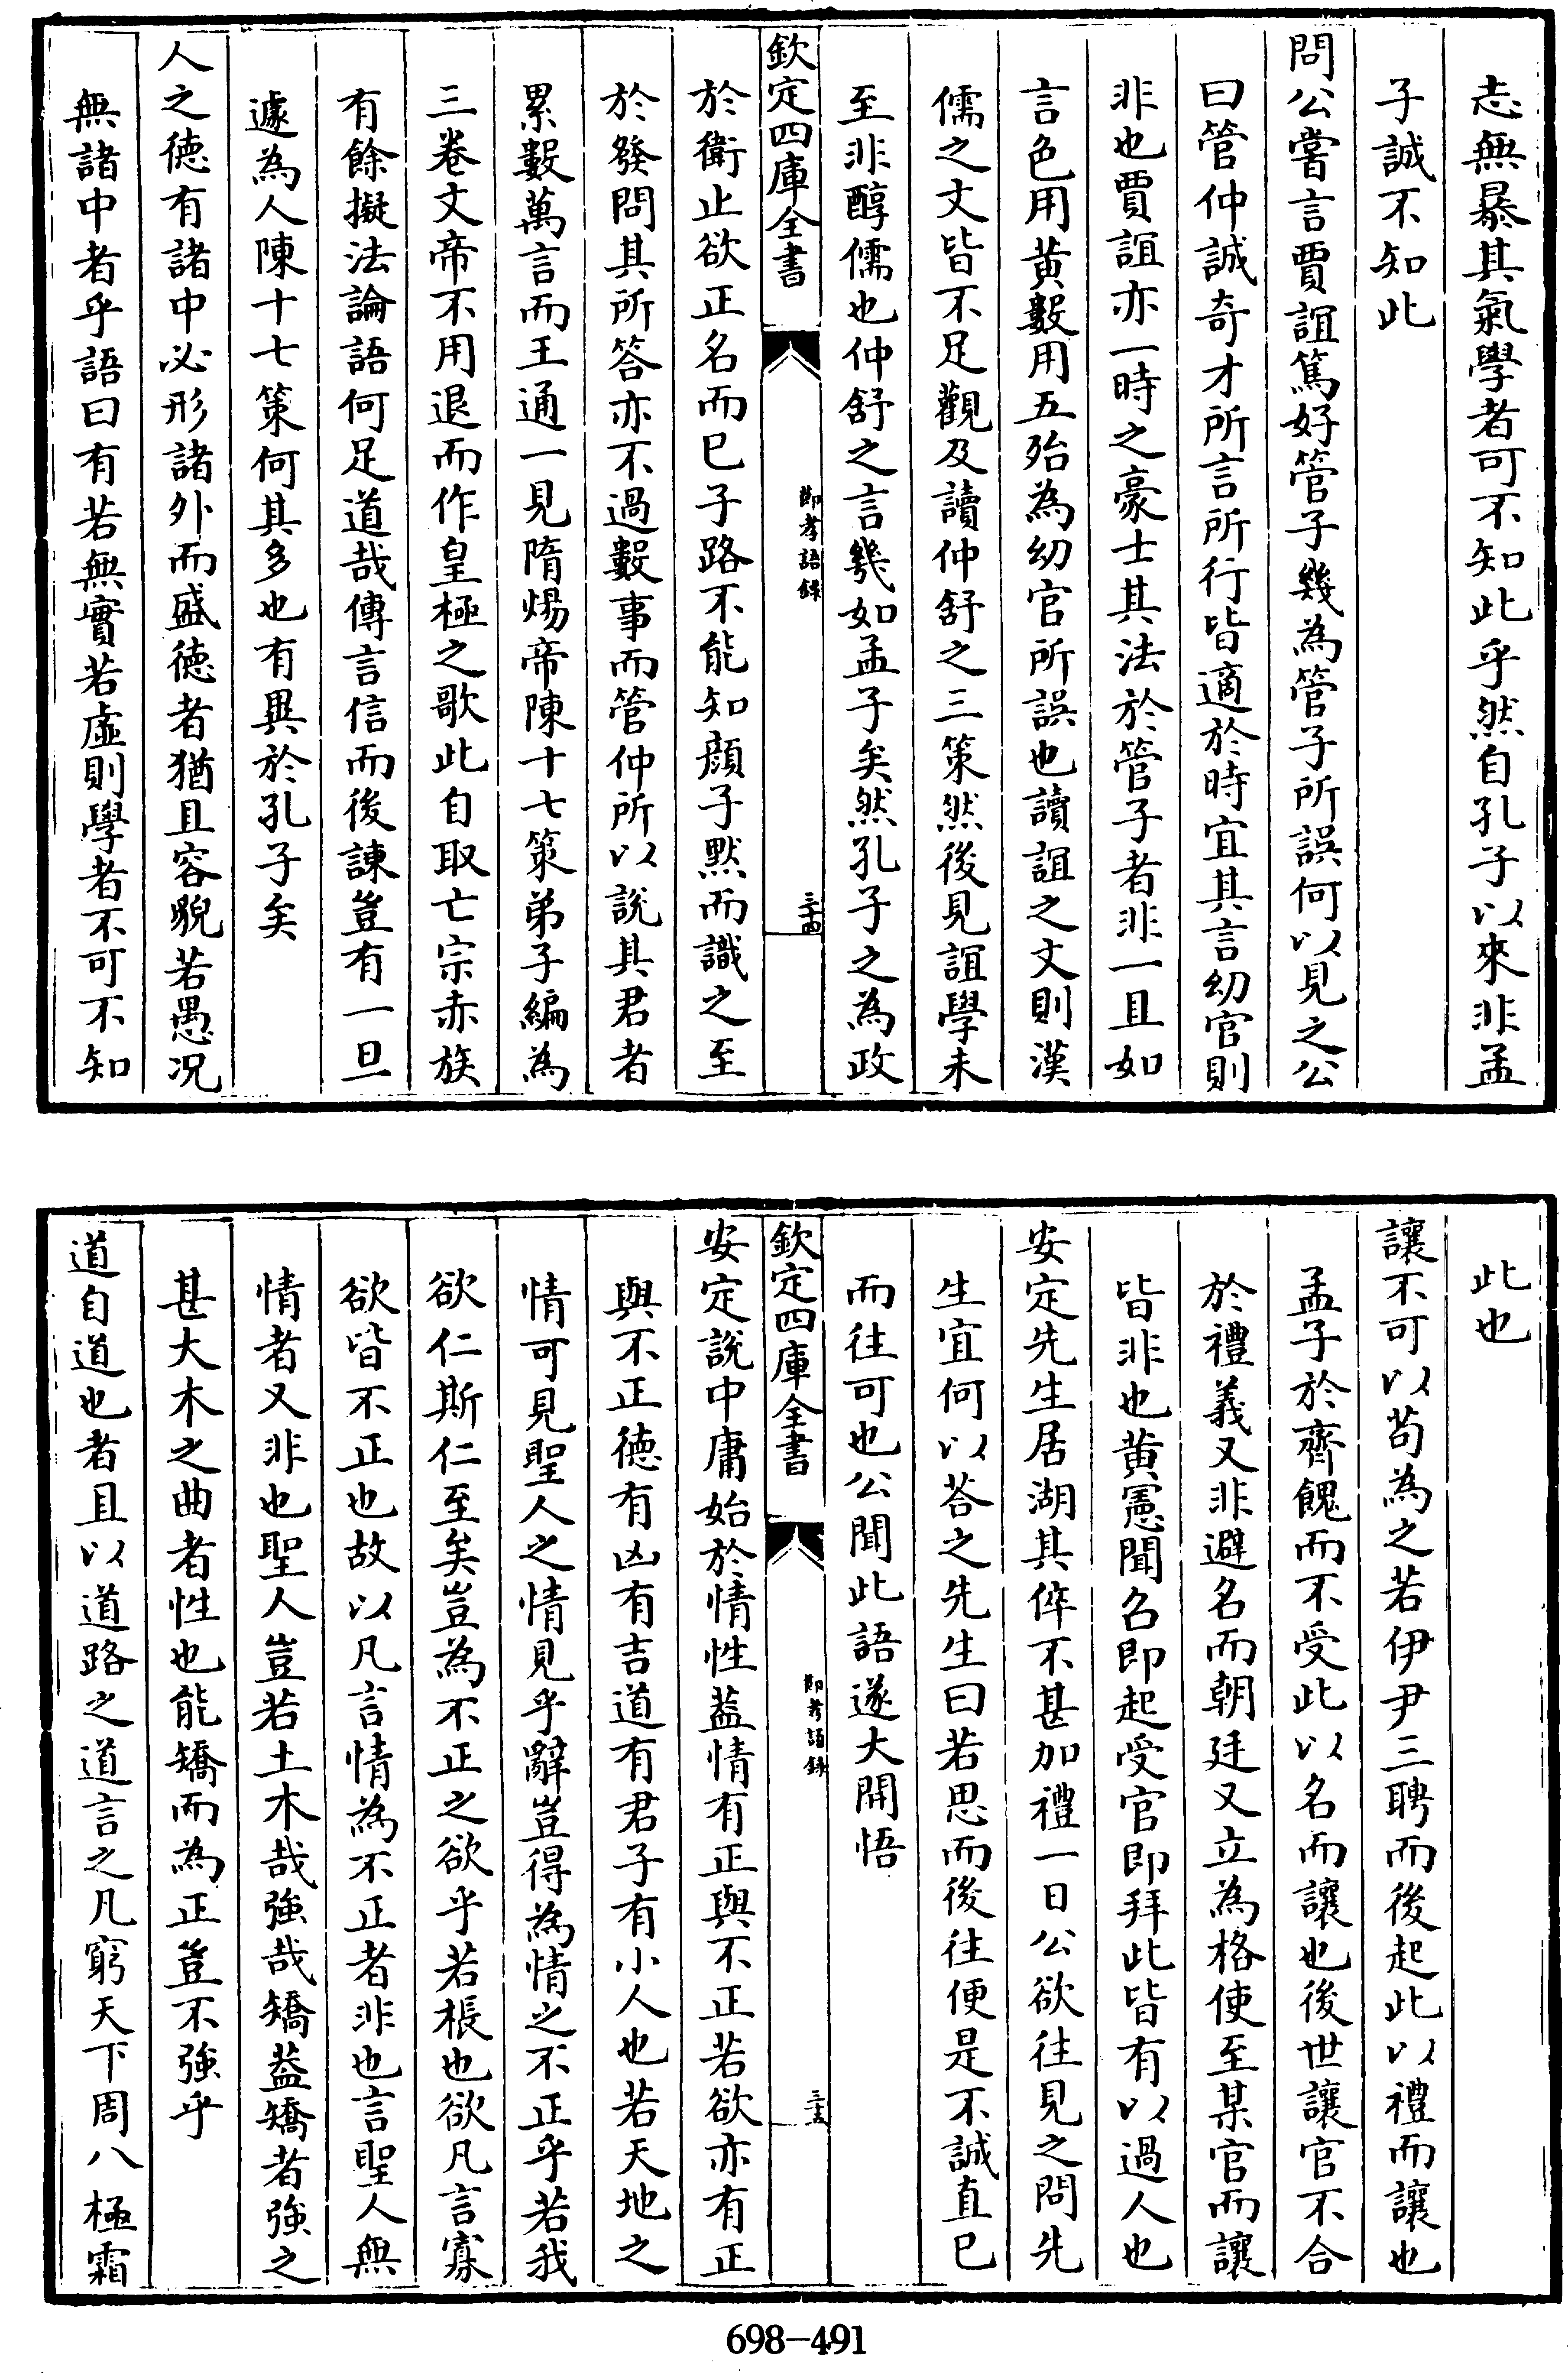 志無暴其氣學者可不知此乎然自孔子以來非孟
子誠不知此
問公嘗言賈誼篤好管子幾為管子所誤何以見之公
曰管仲誠奇才所言所行皆適於時宜其言幼官則
非也賈誼亦一時之豪士其法於管子者非一且如
言色用黄數用五殆為幼官所誤也讀誼之文則漢
儒之文皆不足觀及讀仲舒之三策然後見誼學未
至非醇儒也仲舒之言幾如孟子矣然孔子之為政
欽定四庫全書
節孝語録
三十四
於衛止欲正名而已子路不能知顔子黙而識之至
於發問其所答亦不過數事而管仲所以說其君者
累數萬言而王通一見隋煬帝陳十七策弟子編為
三卷文帝不用退而作皇極之歌此自取亡宗赤族
有餘擬法論語何足道哉傳言信而後諫豈有一旦
遽為人陳十七策何其多也有異於孔子矣
人之德有諸中必形諸外而盛德者猶且容貌若愚况
無諸中者乎語曰有若無實若虛則學者不可不知
此也
讓不可以苟為之若伊尹三聘而後起此以禮而讓也
孟子於齊餽而不受此以名而讓也後世讓官不合
於禮義又非避名而朝廷又立為格使至某官而讓
皆非也黄憲聞名即起受官即拜此皆有以過人也
安定先生居湖其倅不甚加禮一日公欲往見之問先
生宜何以荅之先生曰若思而後往便是不誠直已
而往可也公聞此語遂大開悟
欽定四庫全書
節孝語録
三十五
安定說中庸始於情性蓋情有正與不正若欲亦有正
與不正德有凶有吉道有君子有小人也若天地之
情可見聖人之情見乎辭豈得為情之不正乎若我
欲仁斯仁至矣豈為不正之欲乎若棖也欲凡言寡
欲皆不正也故以凡言情為不正者非也言聖人無
情者又非也聖人豈若土木哉強哉矯蓋矯者強之
甚大木之曲者性也能矯而為正豈不強乎
道自道也者且以道路之道言之凡窮天下周八極霜
698-491